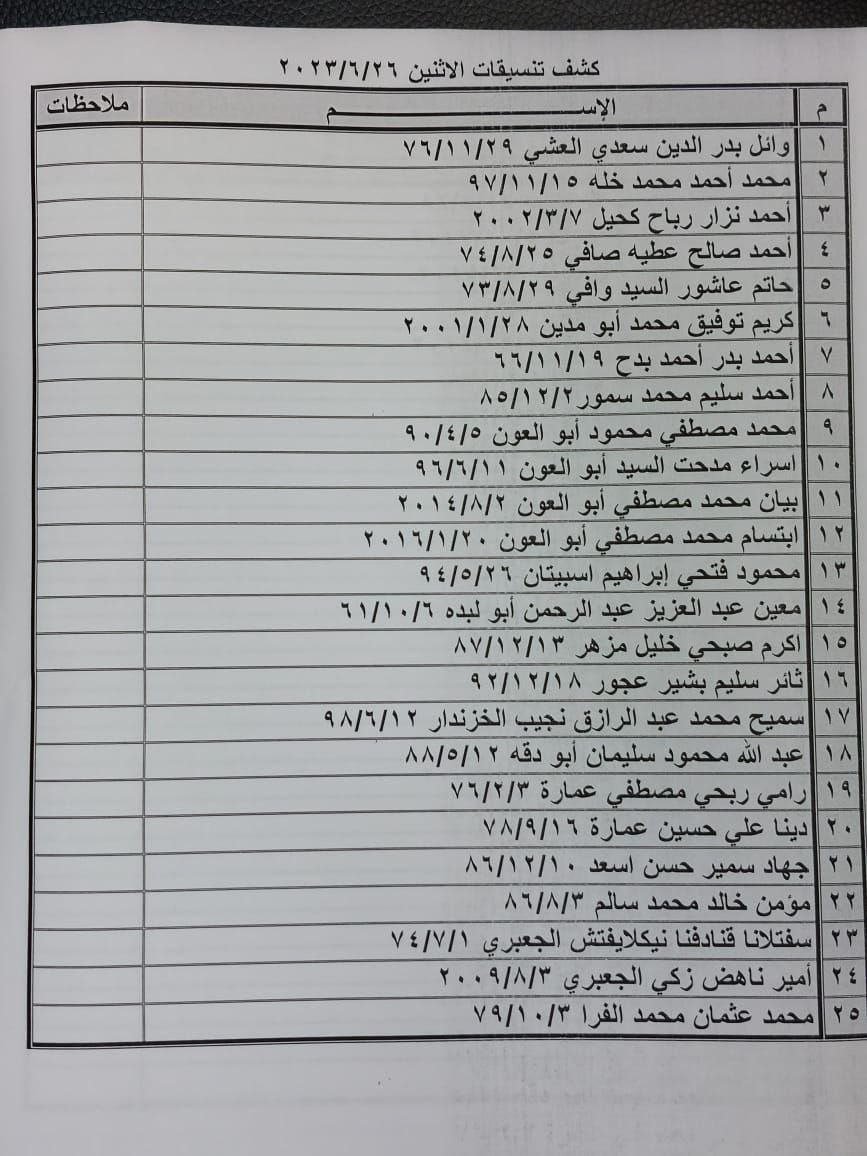 كشف تنسيقات الاثنين ٢٠٢٣/٦/٢٦
م الإســـــــــــــــم ملاحظات
١ وائل بدر الدين سعدي العشي ٧٦/١١/٢٩
٢ محمد أحمد محمد خله ٩٧/١١/١٥
٣ أحمد نزار رباح كحيل ٢٠٠٢/٣/٧
٤ أحمد صالح عطيه صافي ٧٤/٨/٢٥
٥ حاتم عاشور السيد وافي ٧٣/٨/٢٩
٦ كريم توفيق محمد أبو مدين ٢٠٠١/١/٢٨
٧ أحمد بدر أحمد بدح ٦٦/١١/١٩
٨ أحمد سليم محمد سمور ٨٥/١٢/٢
٩ محمد مصطفي محمود أبو العون ٩٠/٤/٥
١٠ اسراء مدحت السيد أبو العون ٩٦/٦/١١
١١ بيان محمد مصطفي أبو العون ٢٠١٤/٨/٢
١٢ ابتسام محمد مصطفي أبو العون ٢٠١٦/١/٢٠
١٣ محمود فتحي إبراهيم اسبيتان ٩٤/٥/٢٦
١٤ معين عبد العزيز عبد الرحمن أبو لبده ٦١/١٠/٦
١٥ اكرم صبحي خليل مزهر ٨٧/١٢/١٣
١٦ ثائر سليم بشير عجور ٩٢/١٢/١٨
١٧ سميح محمد عبد الرازق نجيب الخزندار ٩٨/٦/١٢
١٨ عبد الله محمود سليمان أبو دقه ٨٨/٥/١٢
١٩ رامي ربحي مصطفي عمارة ٧٦/٢/٣
٢٠ دينا علي حسين عمارة ٧٨/٩/١٦
٢١ جهاد سمير حسن اسعد ٨٦/١٢/١٠
٢٢ مؤمن خالد محمد سالم ٨٦/٨/٣
٢٣ سفتلانا قنادفنا نيكلايفتش الجعبري ٧٤/٧/١
٢٤ أمير ناهض زكي الجعبري ٢٠٠٩/٨/٣
٢٥ محمد عثمان محمد الفرا ٧٩/١٠/٣